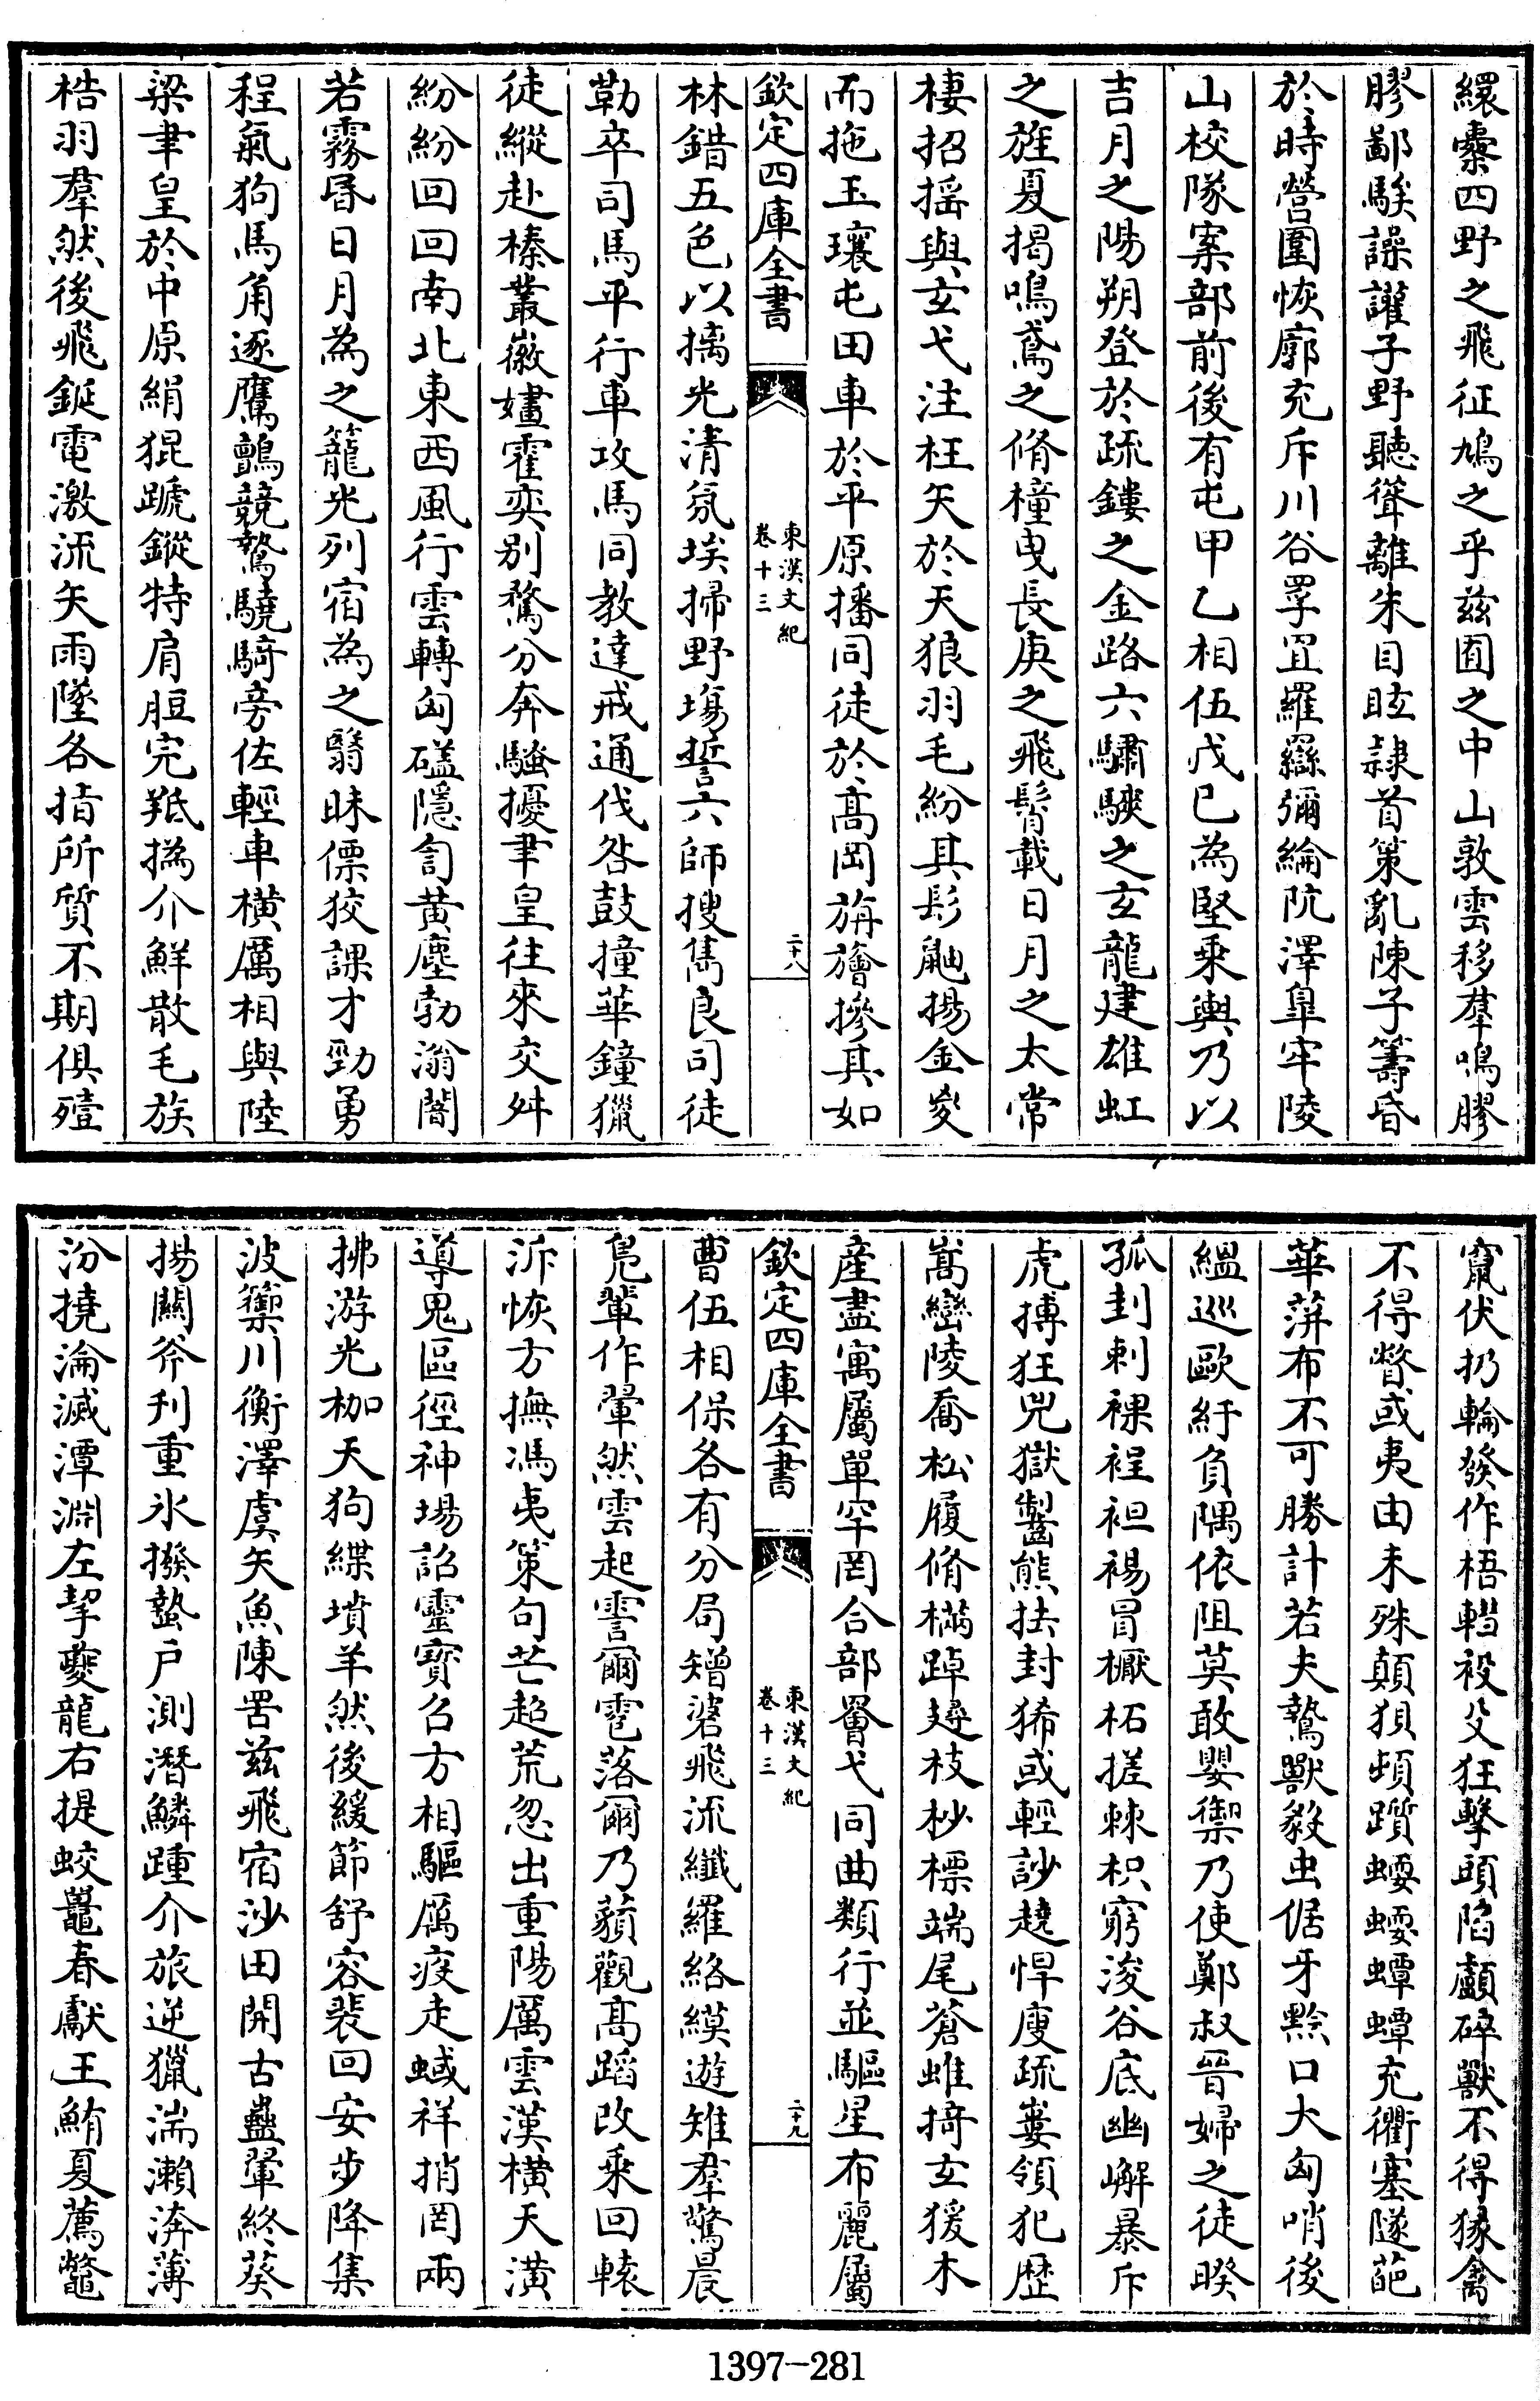 繯橐四野之飛征鳩之乎兹囿之中山敦雲移羣鳴膠
膠鄙騃譟讙子野聽聳離朱目眩隷首策亂陳子籌昏
於時營圍恢廓充斥川谷罦罝羅𦌾彌綸阬澤臯牢陵
山校隊案部前後有屯甲乙相伍戊己為堅乘輿乃以
吉月之陽朔登於疏鏤之金路六驌駚之玄龍建雄虹
之旌夏揭鳴鳶之脩橦曳長庚之飛髾載日月之太常
棲招摇與玄弋注枉矢於天狼羽毛紛其髟鼬揚金㚇
而拖玉瓖屯田車於平原播同徒於高岡旃旝摻其如
欽定四庫全書
東漢文紀
卷十三
二十八
林錯五色以摛光清氛埃掃野場誓六師搜雋良司徒
勒卒司馬平行車攻馬同教達戒通伐咎鼓撞華鐘獵
徒縱赴榛叢徽嫿霍奕别騖分奔騷擾聿皇往來交舛
紛紛回回南北東西風行雲轉匈礚隱訇黄塵勃滃闇
若霧昏日月為之籠光列宿為之翳昧僄狡課才勁勇
程氣狗馬角逐鷹鸇競鷙驍騎旁佐輕車横厲相與陸
梁聿皇於中原絹猑蹏鏦特肩脰完羝撝介鮮散毛族
梏羽羣然後飛鋋電激流矢雨墜各指所質不期俱殪
竄伏扔輪發作梧轊祋殳狂擊頭陷顱碎獸不得猭禽
不得瞥或夷由未殊顛狽頓躓蝡蝡蟫蟫充衢塞隧葩
華蓱布不可勝計若夫鷙獸毅虫倨牙黔口大匈哨後
緼巡歐紆負隅依阻莫敢嬰禦乃使鄭叔晉婦之徒睽
孤刲刺裸裎袒裼冒橛柘搓棘枳窮浚谷底幽嶰暴斥
虎搏狂兕獄齧熊抾封狶或輕訬趬悍廋疏婁領犯歴
嵩巒陵喬松履脩樠踔𨄔枝杪標端尾蒼蜼掎玄猨木
產盡寓屬單罕罔合部罾弋同曲類行並驅星布麗屬
欽定四庫全書
東漢文紀
卷十三
二十九
曹伍相保各有分局矰磻飛流纖羅絡縸遊雉羣驚晨
鳬輩作翬然雲起霅爾雹落爾乃䫉觀高蹈改乘回轅
泝恢方撫馮夷策句芒超荒忽出重陽厲雲漢横天潢
導鬼區徑神場詔靈寳召方相驅厲疫走蜮祥捎罔兩
拂游光枷天狗緤墳羊然後緩節舒容裴回安步降集
波籞川衡澤虞矢魚陳罟兹飛宿沙田開古蠱翬終葵
揚關斧刋重氷撥蟄户測潛鱗踵介旅逆獵湍瀨渀薄
汾撓淪滅潭淵左挈夔龍右提蛟鼉春獻王鮪夏薦鼈
1397-281